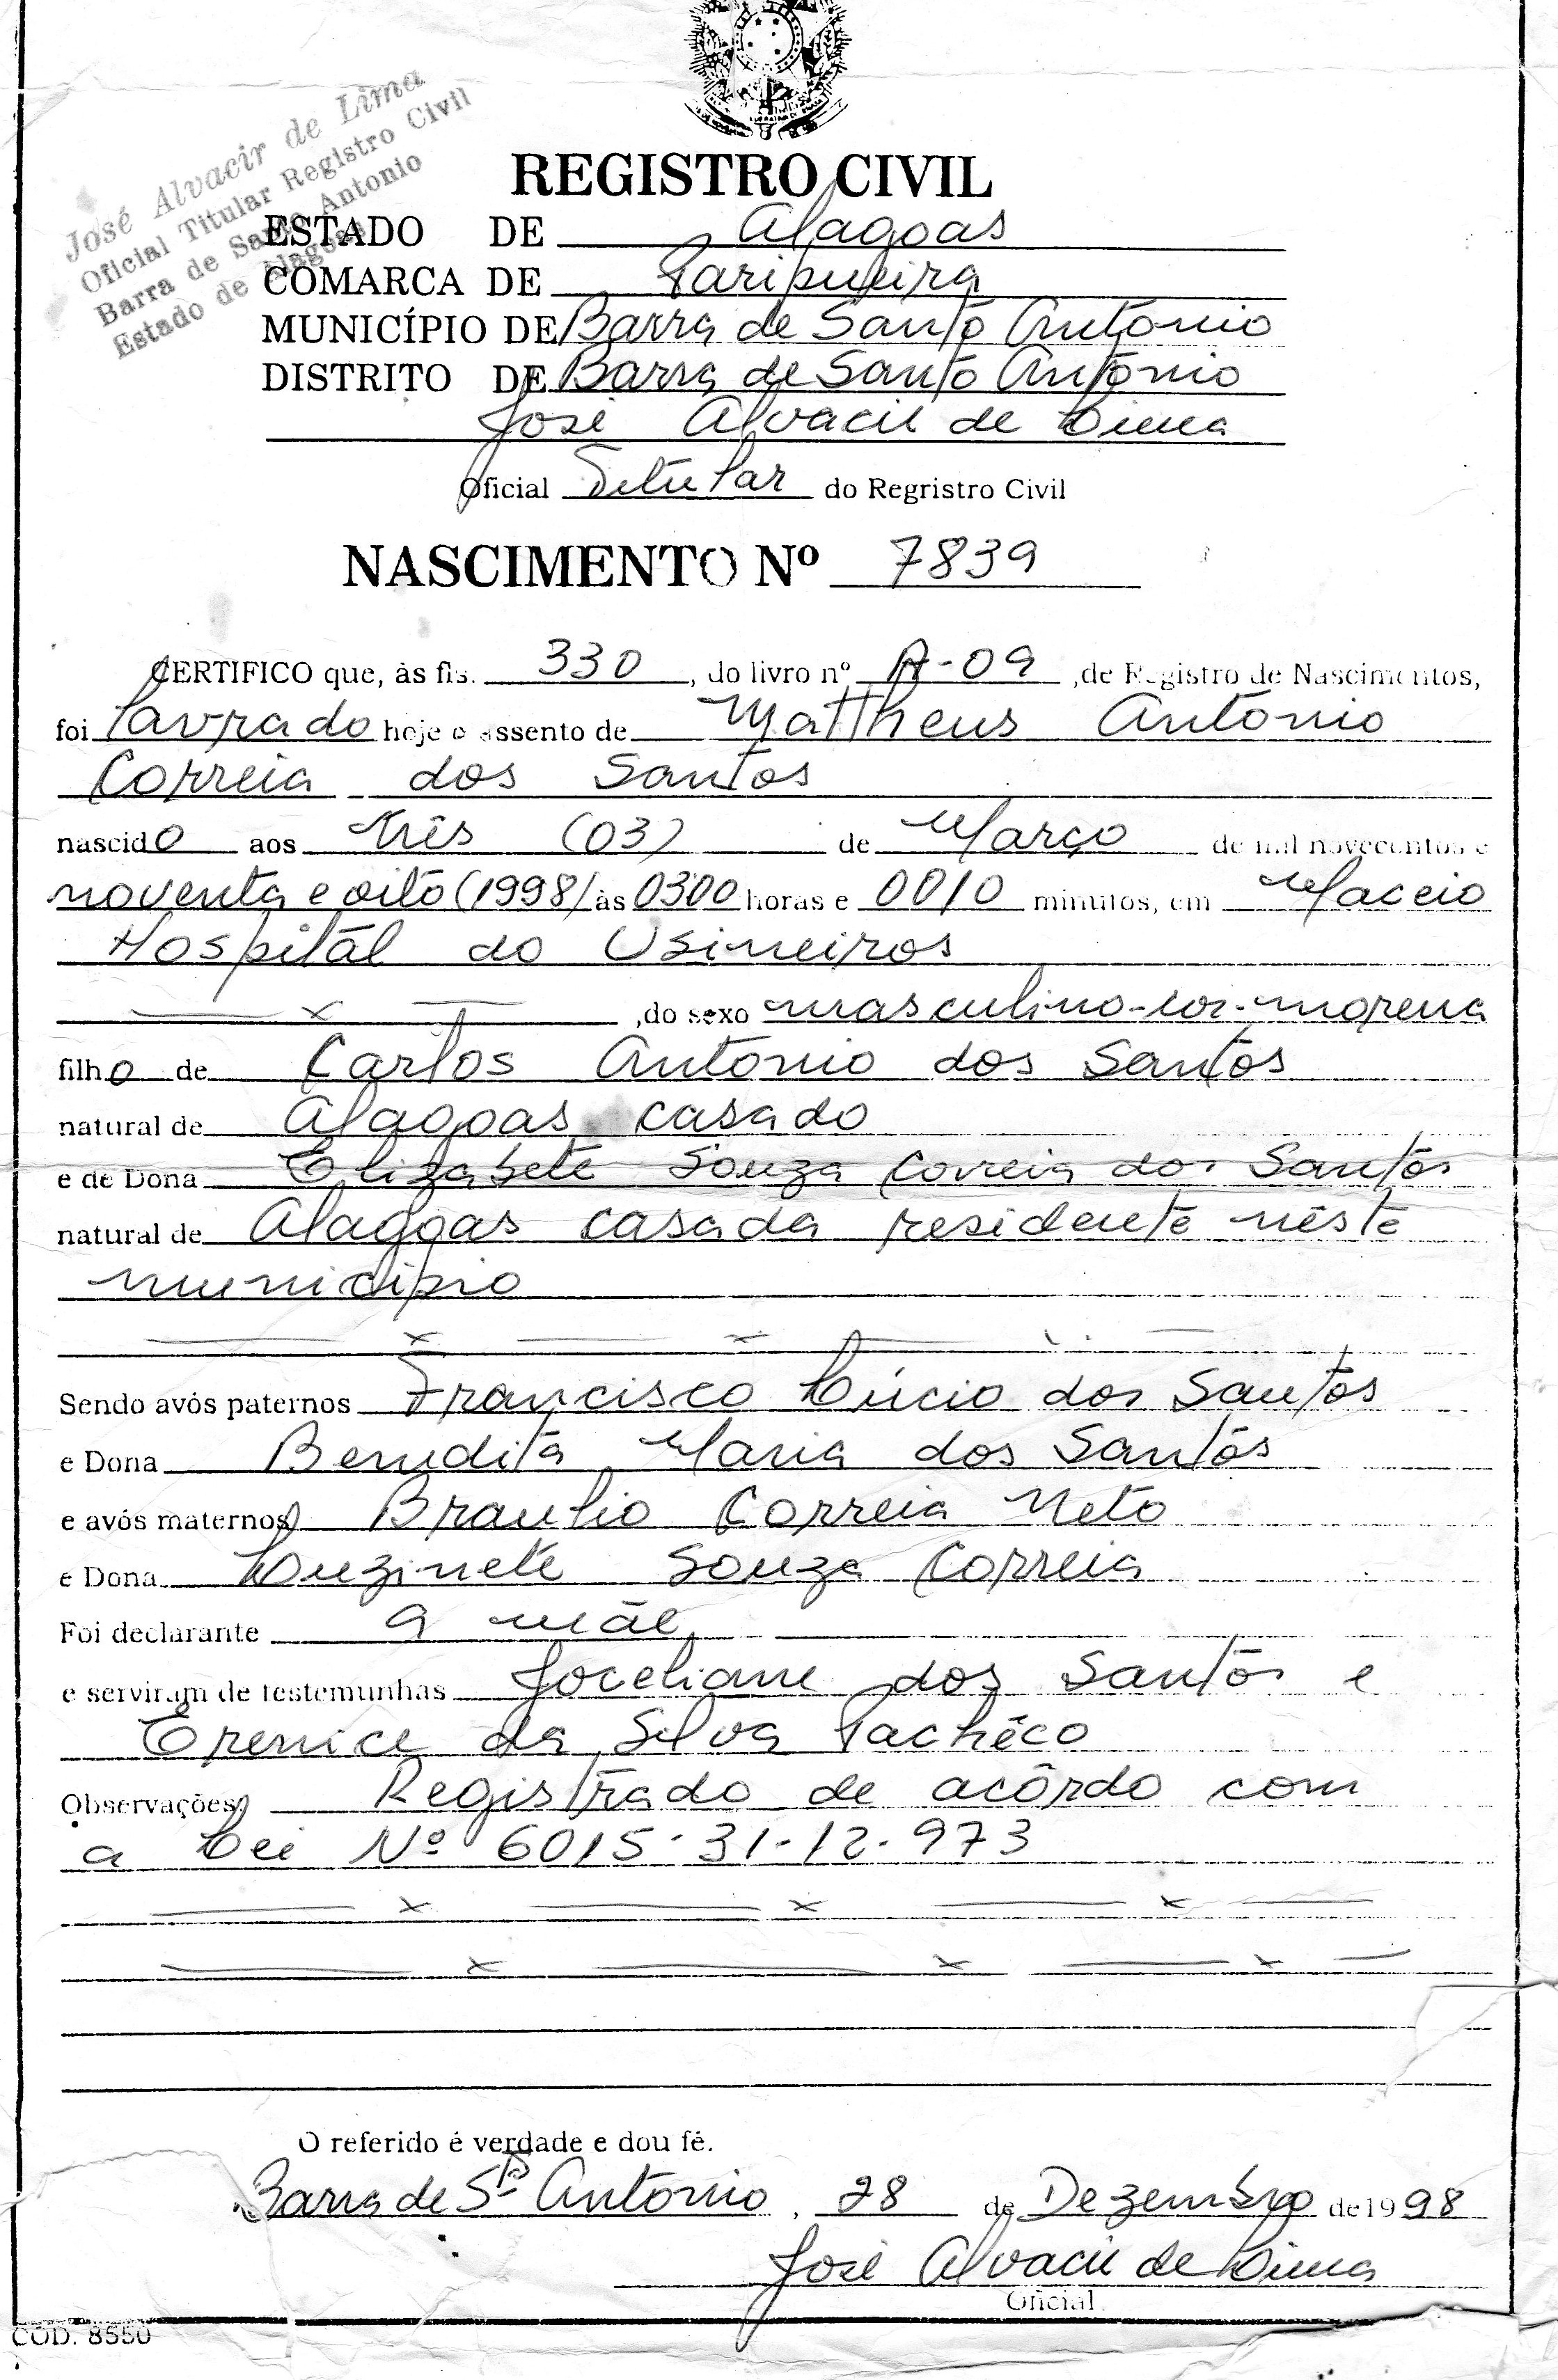 José Alvacir de Lima
Oficial Titular Registro Civil
Barra de Santo Antonio
Estado de Alagoas
REGISTRO CIVIL
ESTADO DE Alagoas
COMARCA DE Paripueira
MUNICÍPIO DE Barra de Santo Antonio
DISTRITO DE Barra de Santo Antonio
José Alvacir de Lima
Oficial Titular do Regristro Civil
NASCIMENTO Nº 7839
CERTIFICO que, às fls. 330, do livro nº A-09, de Registro de Nascimentos,
foi lavrado hoje o assento de Mattheus Antonio
Correia dos Santos
nascido aos três (03) de Março de mil novecentos e
noventa e oito (1998) às 0300 horas e 0010 minutos, em Maceio
Hospital do Usineiros
x , do sexo masculino-cor-morena
filho de Carlos Antonio dos Santos
natural de Alagoas casado
e de Dona Elizabete Souza Correia dos Santos
natural de Alagoas casada residente nêste
municipio
x x
Sendo avós paternos Francisco Lúcio dos Santos
e Dona Benedita Maria dos Santos
e avós maternos Braulio Correia Neto
e Dona Luzinete Souza Correia
Foi declarante a mãe
e serviram de testemunhas Joceliane dos Santos e
Erenice da Silva Pachêco
Observações Registrado de acôrdo com
a Lei Nº 6015-31-12-973
x x x
x x x
O referido é verdade e dou fé.
Barra de Sto Antonio, 28 de Dezembro de 1998
José Alvacir de Lima
Oficial
COD. 8550